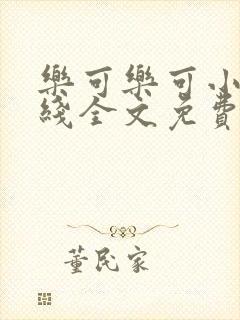 樂可樂可小
綫全文免費
董民家